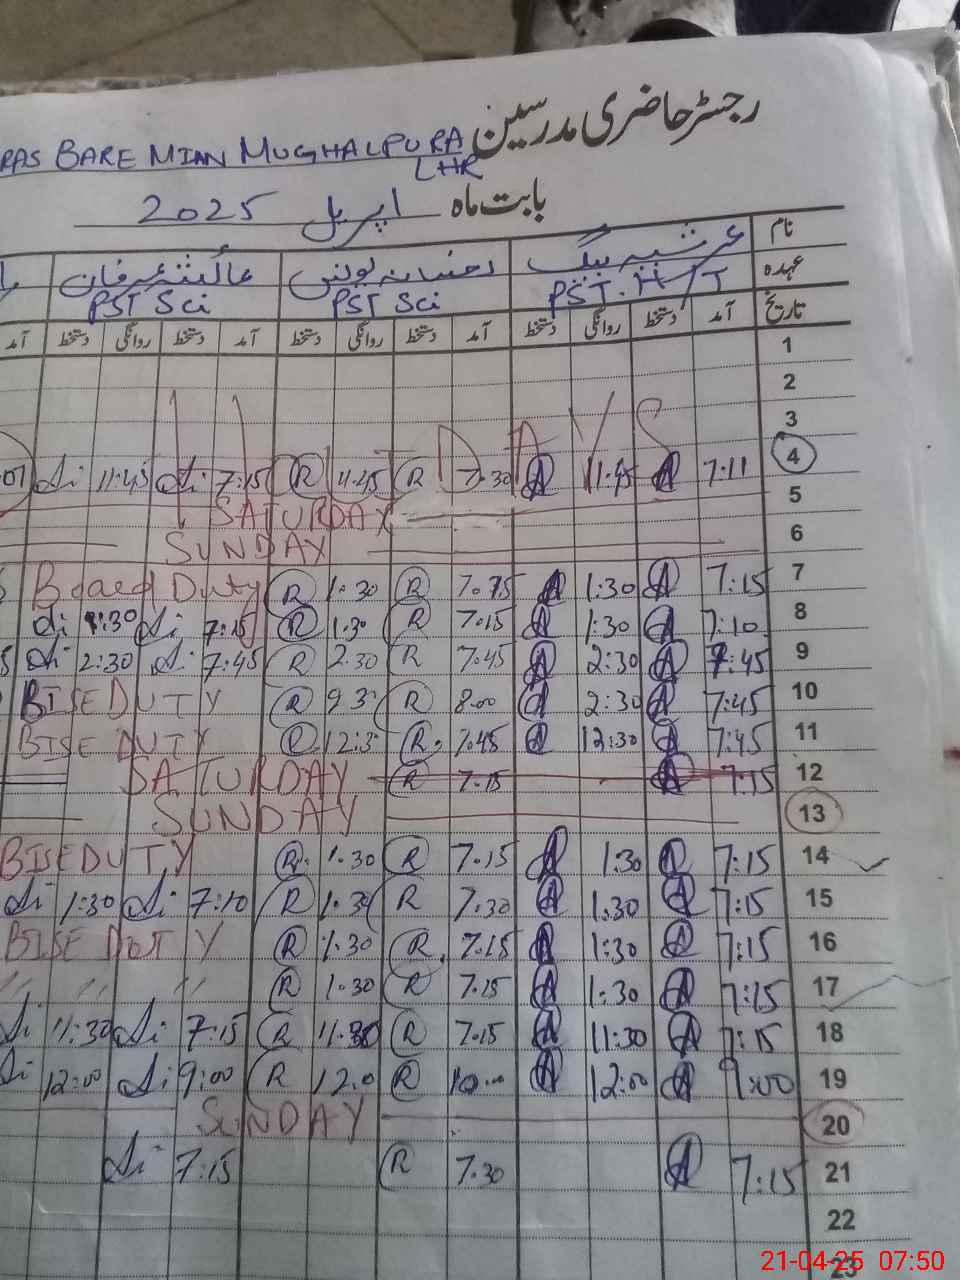 رجسٹر حاضری مدرسین
RAS BARE MIAN MUGHALPURA
LHR
بابت ماہ اپریل 2025
نام عرشیہ بیگ رخسانہ یونس عائشہ عرفان
عہدہ PST. H/T PST Sci PST Sci
تاریخ آمد دستخط روانگی دستخط آمد دستخط روانگی دستخط آمد دستخط روانگی دستخط آمد
1
2
3
DAYS
4 7:11 A 11:45 A 7.30 R 11.45 R 7:15 Si 11:45 Si
5 SATURDAY
6 SUNDAY
7 7:15 A 1:30 A R 1.30 R Board Duty
8 7:10 A 1:30 A 7.15 R 1.30 R 7:15 Si 1:30 Si
9 7:45 A 2:30 A 7.45 R 2.30 R 7:45 Si 2:30 Si
10 7:45 A 2:30 A 8.00 R R BISE DUTY
11 7:45 A 12:30 A 7.45 R R BISE DUTY
12 7:15 A 7.15 R SATURDAY
13 SUNDAY
14 7:15 A 1:30 A 7.15 R 1.30 R BISE DUTY
15 7:15 A 1:30 A 7.30 R 1.30 R 7:10 Si 1:30 Si
16 7:15 A 1:30 A 7.15 R 1.30 R BISE DUTY
17 7:15 A 1:30 A 7.15 R 1.30 R " " "
18 7:15 A 11:30 A 7.15 R 11.30 R 7:15 Si 11:30 Si
19 9:00 A 12:00 A 10.00 R 12.0 R 9:00 Si 12:00 Si
20 SUNDAY
21 7:15 A 7.30 R 7:15 Si
22
23
21-04-25 07:50